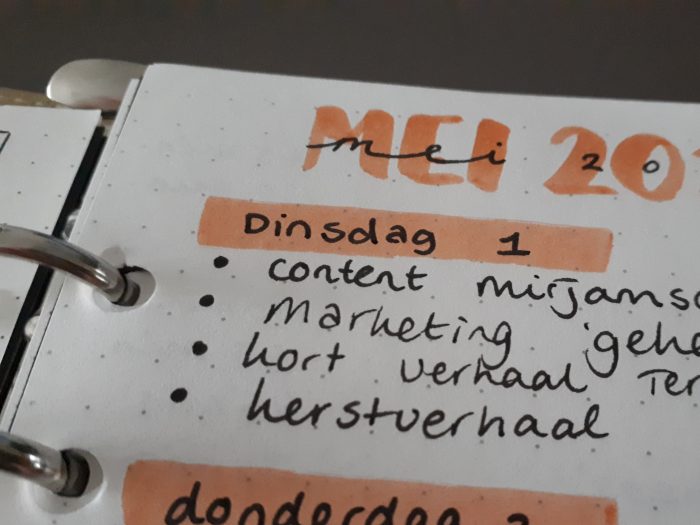 MEI 20
mei 20
Dinsdag 1
• content mirjams
• marketing gehe
• kort verhaal Ter
• kerstverhaal
donderdag 3